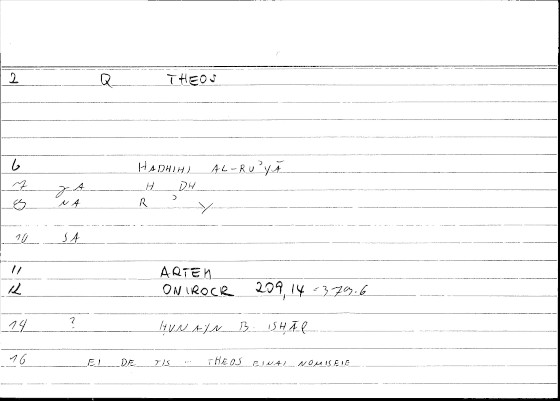 2 Q THEOS
6 HADHIHI AL-RUʾYĀ
7 YA H DH
8 NA R ʾ Y
10 SA
11 ARTEM
12 ONIROCR 209,14 - 379.6
14 ? ḤUNAYN B. ISḤĀQ
16 EI DE TIS - THEOS EINAI NOMISEIE